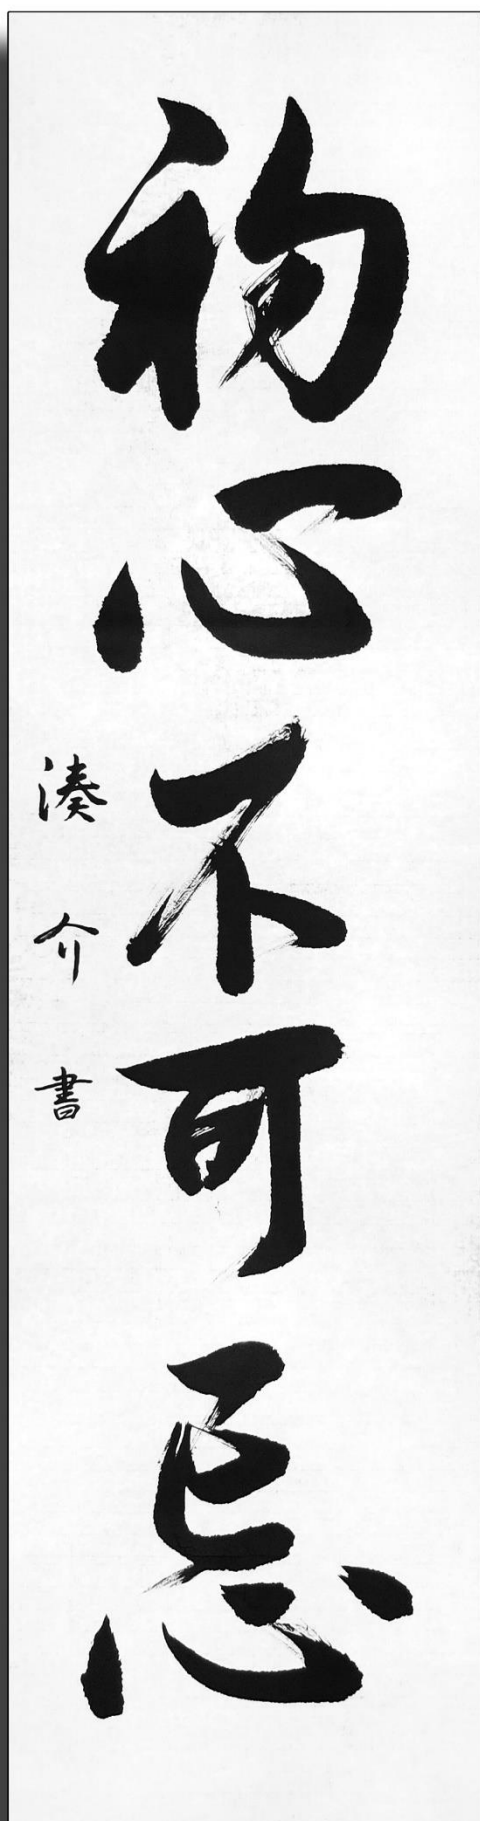 初心不可忘
湊介書